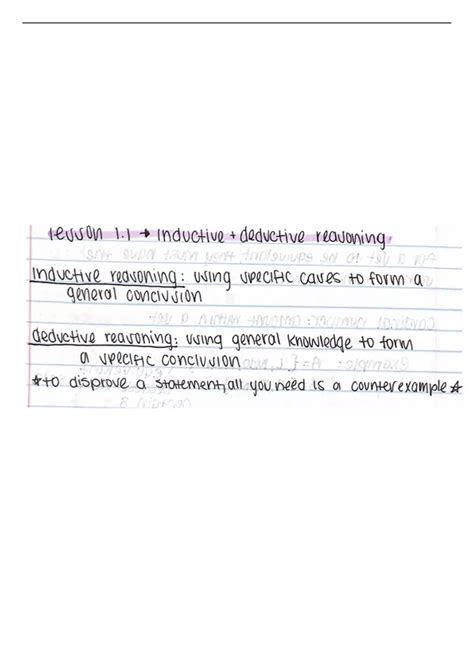 lesson 1.1 → inductive + deductive reasoning
inductive reasoning: using specific cases to form a
general conclusion
deductive reasoning: using general knowledge to form
a specific conclusion
★to disprove a statement, all you need is a counterexample★